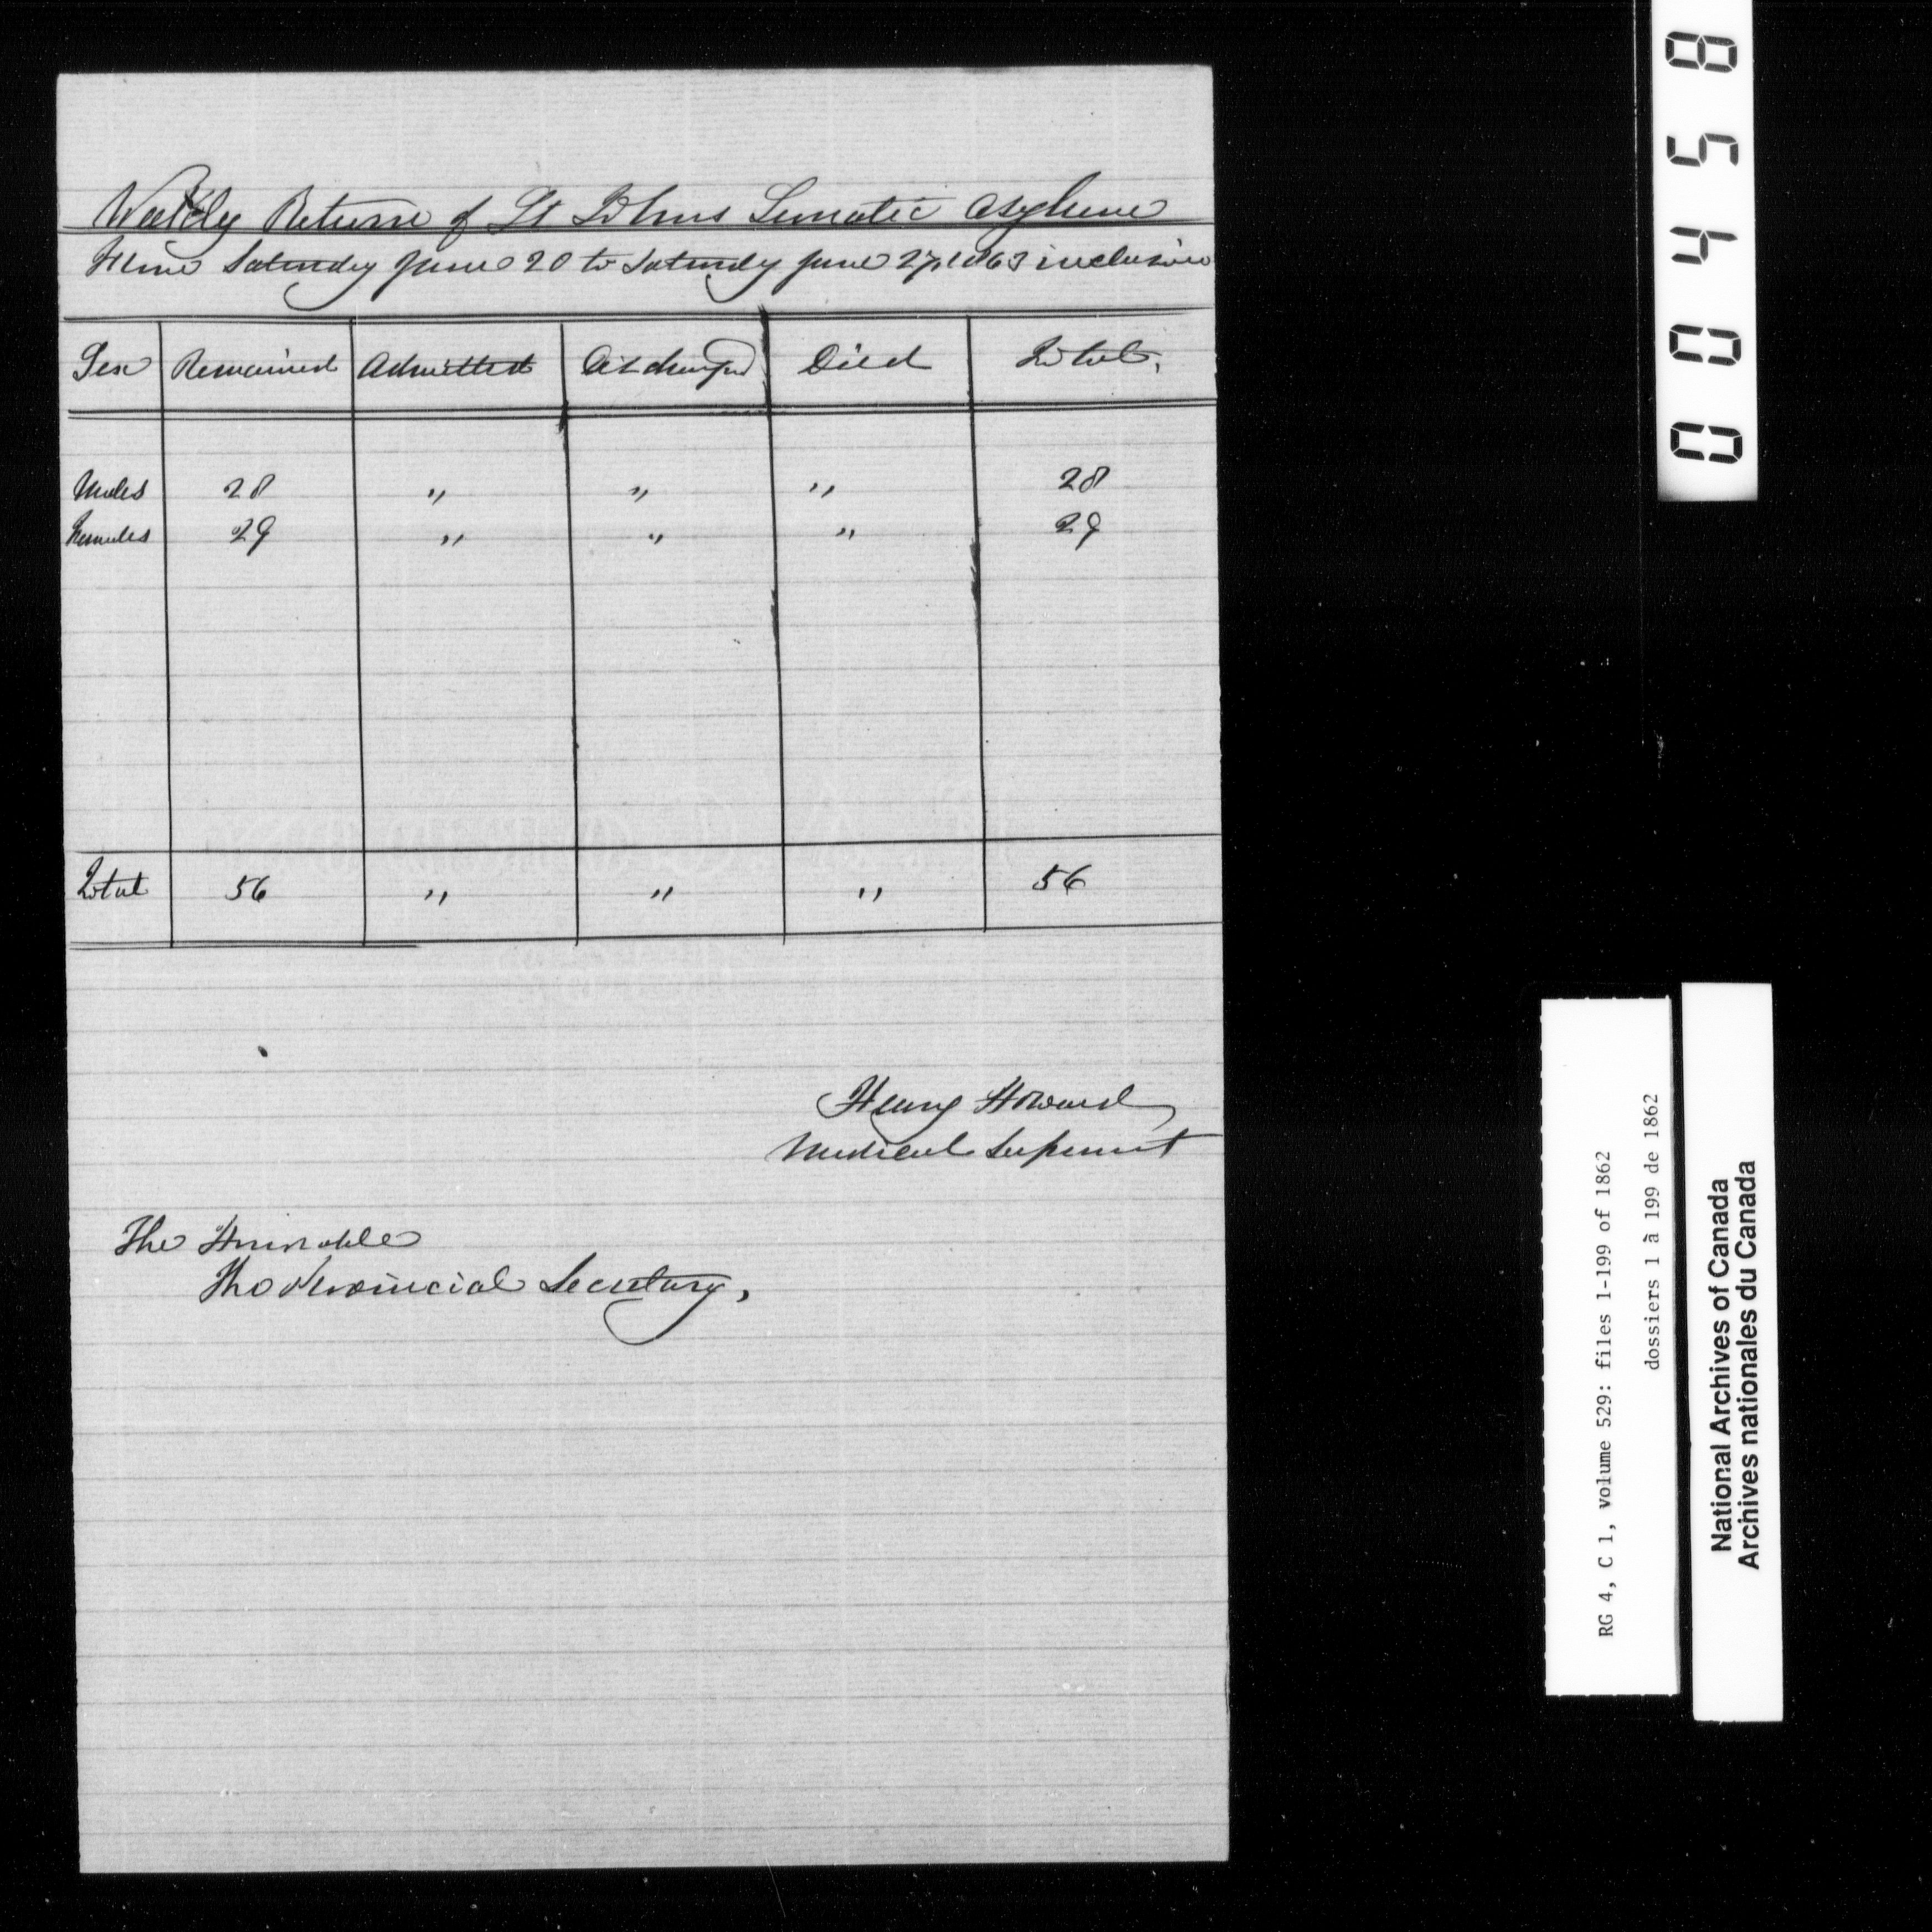 Weekly Return of St Johns Lunatic Asylum
From Saturday June 20 to Saturday June 27, 1863 inclusive
Sex Remained Admitted Discharged Died Total.
Males 28 " " " 28
Females 29 " " " 29
Total 56 " " " 56
Henry Howard
Medical Superint
The Honorable
The Provincial Secretary,
00458
RG 4, C 1, volume 529: files 1-199 of 1862
dossiers 1 à 199 de 1862
National Archives of Canada
Archives nationales du Canada